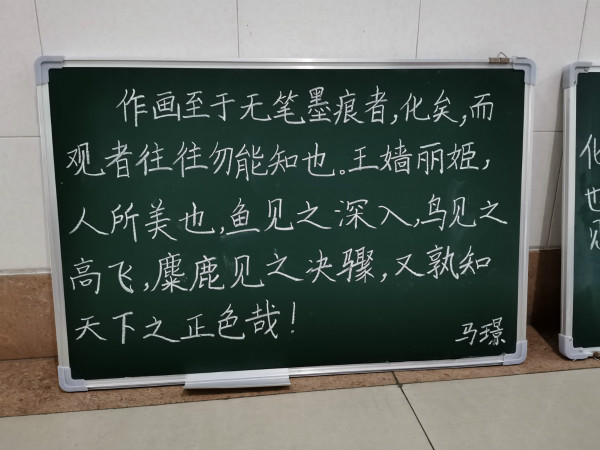 作画至于无笔墨痕者,化矣,而
观者往往勿能知也。王嫱丽姬,
人所美也,鱼见之深入,鸟见之
高飞,麋鹿见之决骤,又孰知
天下之正色哉!
马璟
化
也
见